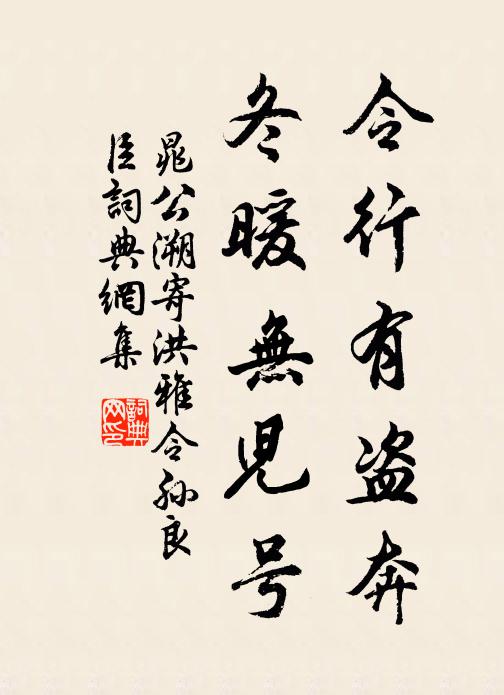 令行有盗奔
冬暖無児号
晁公溯寄洪雅令孙良
臣詞典網集
詞典
网印